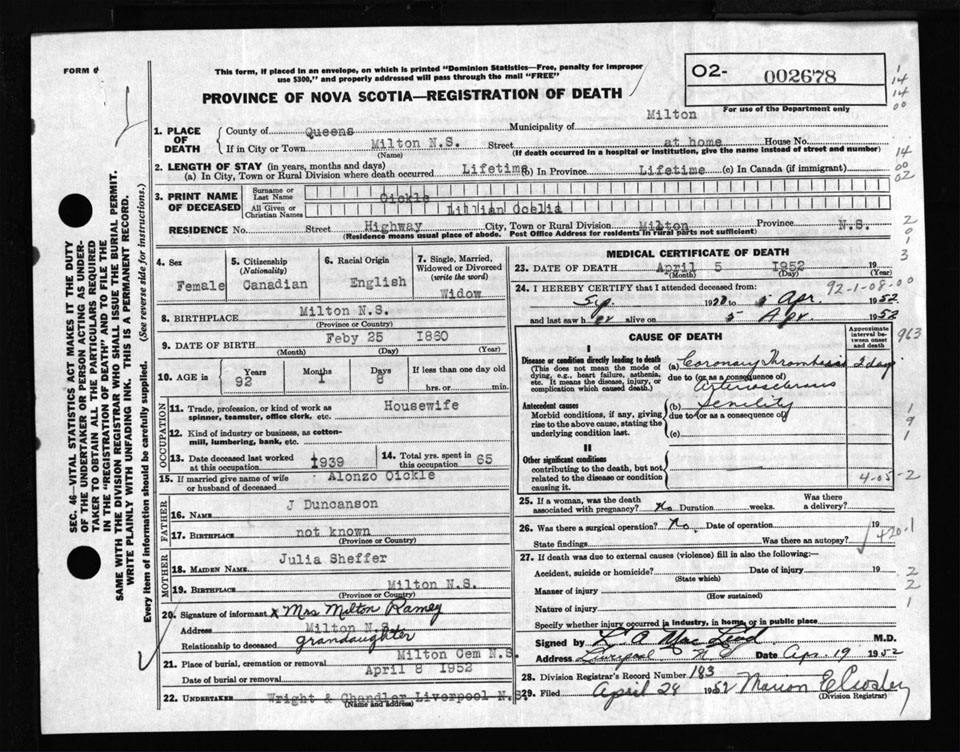 FORM 6
This form, if placed in an envelope, on which is printed "Dominion Statistics—Free, penalty for improper
use $300," and properly addressed will pass through the mail "FREE"
PROVINCE OF NOVA SCOTIA—REGISTRATION OF DEATH
O2- 002678
For use of the Department only
1. PLACE OF DEATH
County of Queens Municipality of Milton
If in City or Town Milton N.S. Street at home House No.
(Name) (If death occurred in a hospital or institution, give the name instead of street and number)
2. LENGTH OF STAY (in years, months and days)
(a) In City, Town or Rural Division where death occurred Lifetime (b) In Province Lifetime (c) In Canada (if immigrant)
3. PRINT NAME OF DECEASED
Surname or Last Name Oickle
All Given or Christian Names Lillian Ocelia
RESIDENCE No. Street Highway City, Town or Rural Division Milton Province N.S.
(Residence means usual place of abode. Post Office Address for residents in rural parts not sufficient)
4. Sex Female
5. Citizenship (Nationality) Canadian
6. Racial Origin English
7. Single, Married, Widowed or Divorced (write the word) Widow
8. BIRTHPLACE Milton N.S.
(Province or Country)
9. DATE OF BIRTH Feby 25 1860
(Month) (Day) (Year)
10. AGE in Years 92 Months 1 Days 8 If less than one day old
hrs. or min.
OCCUPATION
11. Trade, profession, or kind of work as spinner, teamster, office clerk, etc. Housewife
12. Kind of industry or business, as cotton-mill, lumbering, bank, etc.
13. Date deceased last worked at this occupation 1939
14. Total yrs. spent in this occupation 65
15. If married give name of wife or husband of deceased Alonzo Oickle
FATHER
16. NAME J Duncanson
17. BIRTHPLACE not known
(Province or Country)
MOTHER
18. MAIDEN NAME Julia Sheffer
19. BIRTHPLACE Milton N.S.
(Province or Country)
20. Signature of informant x Mrs Milton Ramey
Address Milton N.S.
Relationship to deceased grandaughter
21. Place of burial, cremation or removal Milton Cem N.S.
Date of burial or removal April 8 1952
22. UNDERTAKER Wright & Chandler Liverpool N.S.
(Name and address)
MEDICAL CERTIFICATE OF DEATH
23. DATE OF DEATH April 5 1952 19
(Month) (Year)
24. I HEREBY CERTIFY that I attended deceased from:
92-1-08-00
to 5 Apr 1952
and last saw her alive on 5 Apr 1952
CAUSE OF DEATH
Approximate interval between onset and death
I
Disease or condition directly leading to death
(This does not mean the mode of dying, e.g., heart failure, asthenia, etc. It means the disease, injury, or complication which caused death.)
(a) Coronary Thrombosis 2 day
due to (or as a consequence of)
Arteriosclerosis
Antecedent causes
Morbid conditions, if any, giving rise to the above cause, stating the underlying condition last.
(b) Senility
due to (or as a consequence of)
(c)
II
Other significant conditions
contributing to the death, but not related to the disease or condition causing it.
4-05-2
25. If a woman, was the death associated with pregnancy? No Duration weeks. Was there a delivery?
26. Was there a surgical operation? No. Date of operation 19
State findings Was there an autopsy?
420.1
27. If death was due to external causes (violence) fill in also the following:—
Accident, suicide or homicide? Date of injury 19
(State which)
Manner of injury
(How sustained)
Nature of injury
Specify whether injury occurred in industry, in home, or in public place
Signed by L A MacLeod M.D.
Address Liverpool N S Date Apr 19 1952
28. Division Registrar's Record Number 183
29. Filed April 28 1952 Marion E
(Division Registrar)
SEC. 46—VITAL STATISTICS ACT MAKES IT THE DUTY
OF THE UNDERTAKER OR PERSON ACTING AS UNDER-
TAKER TO OBTAIN ALL THE PARTICULARS REQUIRED
IN THE "REGISTRATION OF DEATH" AND TO FILE THE
SAME WITH THE DIVISION REGISTRAR WHO SHALL ISSUE THE BURIAL PERMIT.
WRITE PLAINLY WITH UNFADING INK. THIS IS A PERMANENT RECORD.
Every item of information should be carefully supplied. (See reverse side for instructions.)
1
14
14
00
14
00
02
2
0
1
3
963
1
9
1
2
2
1